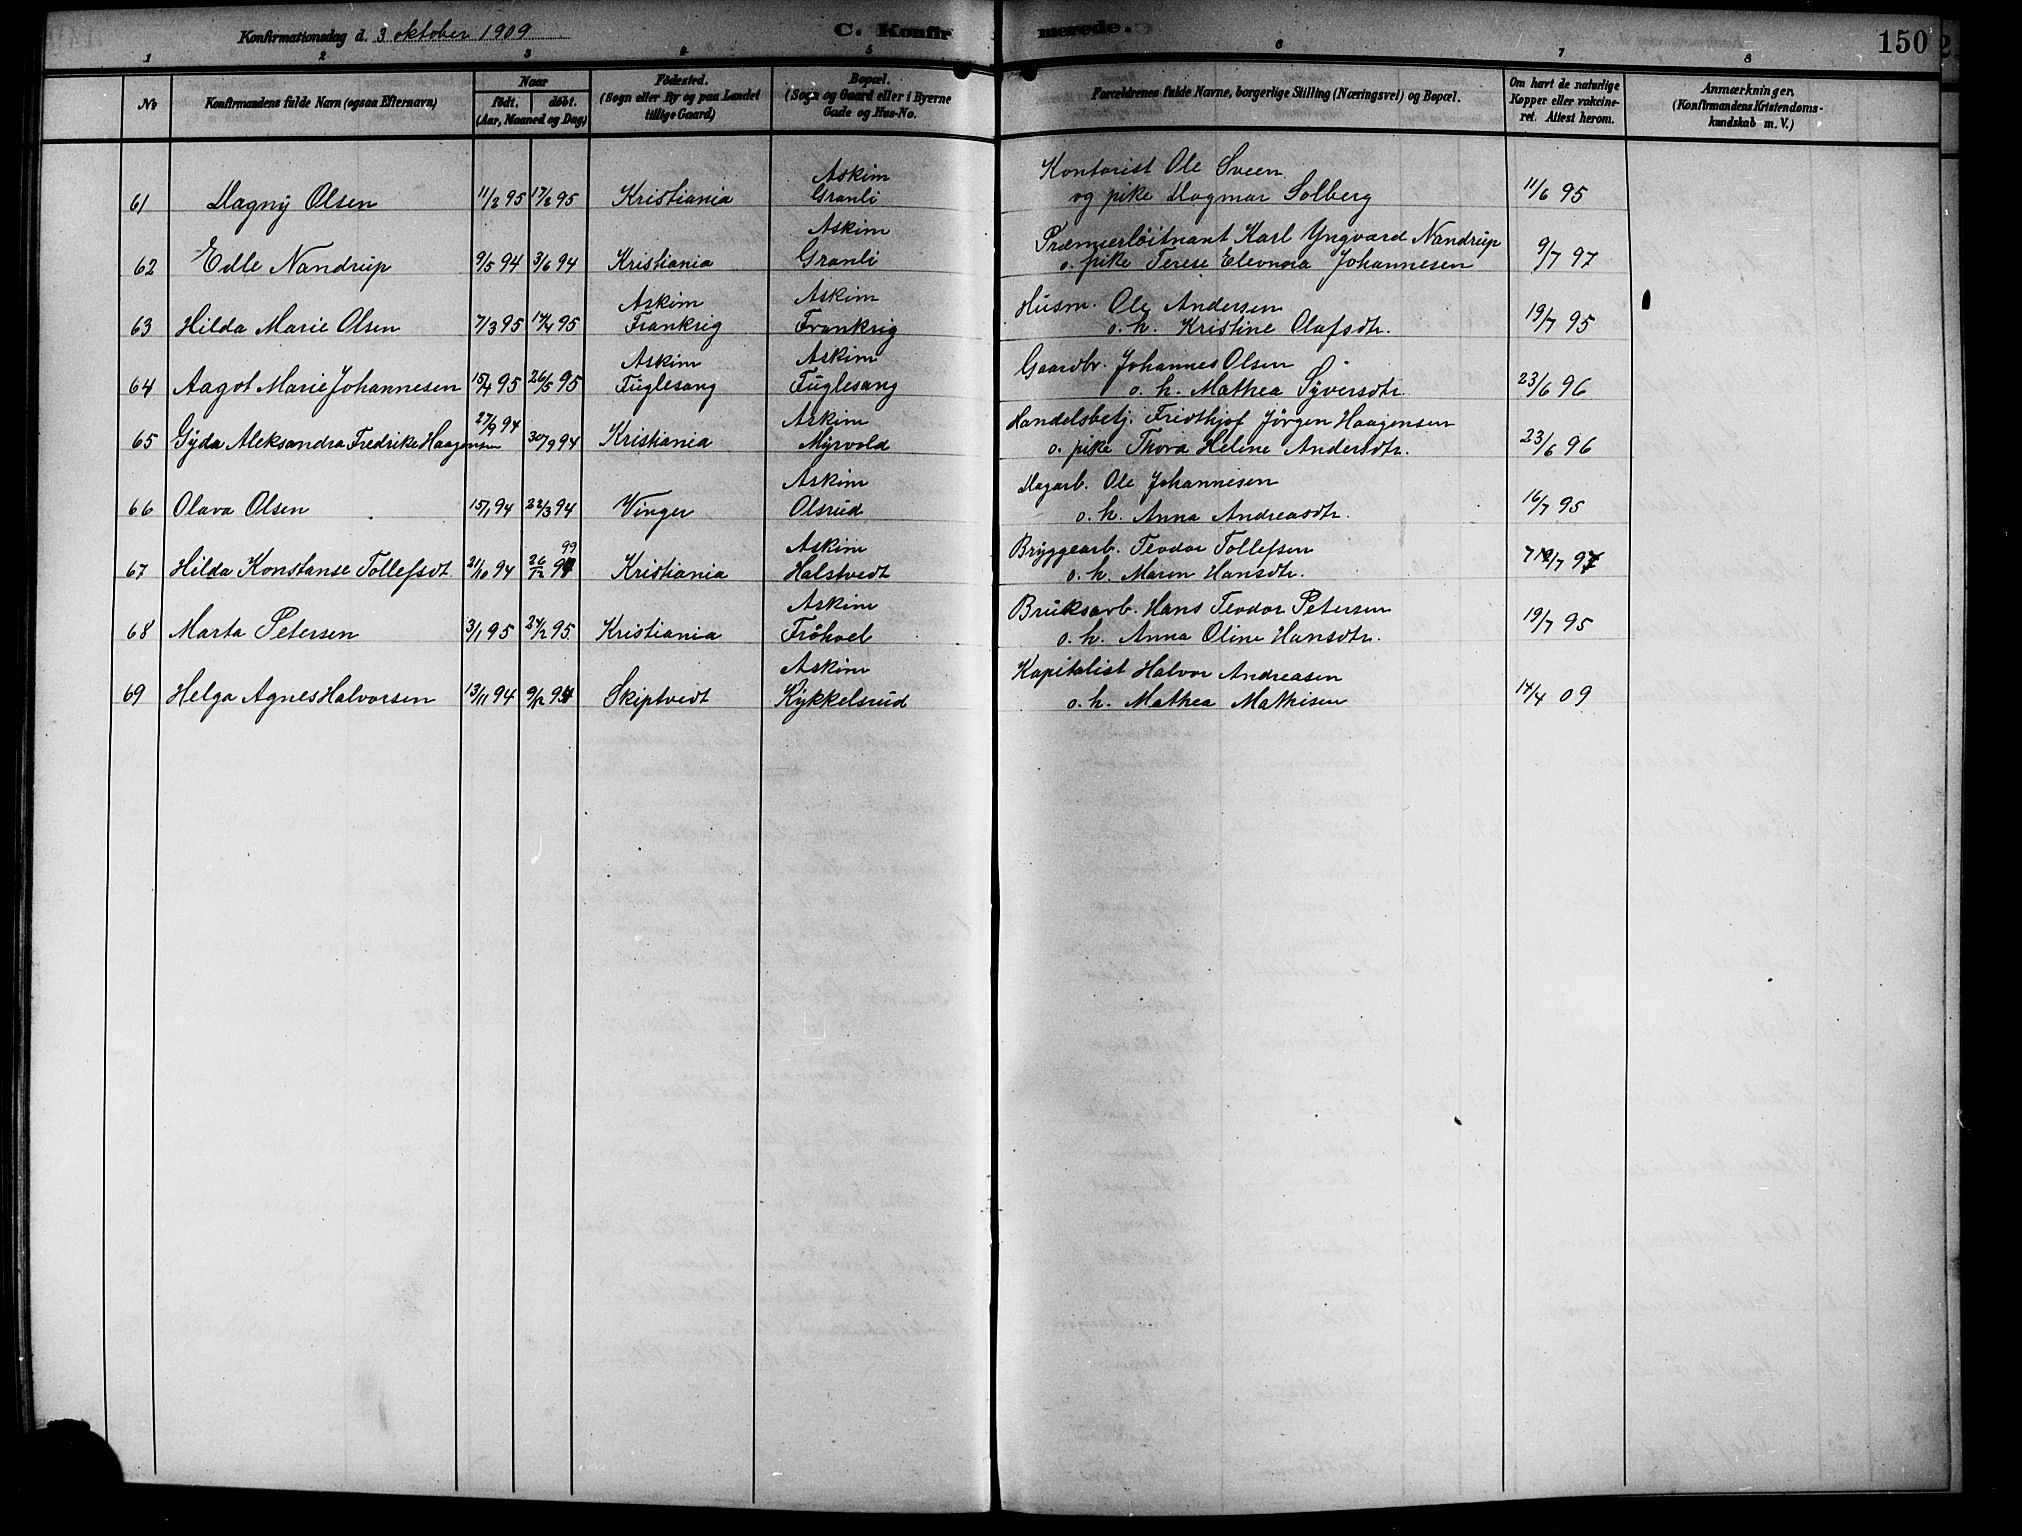 Konfirmationsdag d. 3 oktober 1909
C. Konfirmerede.
150
1 2 3 4 5 6 7 8
No
Konfirmandens fulde Navn (ogsaa Efternavn)
Naar
født. døbt.
(Aar, Maaned og Dag)
Fødested.
(Sogn eller By og paa Landet
tillige Gaard)
Bopæl.
(Sogn og Gaard eller i Byerne
Gade og Hus-No.
Forældrenes fulde Navne, borgerlige Stilling (Næringsvei) og Bopæl.
Om havt de naturlige
Kopper eller vakcine-
ret. Attest herom.
Anmærkninger.
(Konfirmandens Kristendoms-
kundskab m. V.)
Askim Kontorist Ole Sveen
61 Dagny Olsen 11/2 95 17/2 95 Kristiania Granli og pike Dagmar Solberg 11/6 95
Askim Præmierløitnant Karl Yngvard Nandrup
62 Edle Nandrup 9/5 94 3/6 94 Kristiania Granli o. pike Terese Eleonora Johannesen 9/7 97
Askim Askim Husm. Ole Andersen
63 Hilda Marie Olsen 7/3 95 14/4 95 Frankrig Frankrig o. h. Kristine Olafsdtr. 19/7 95
Askim Askim Gaardbr. Johannes Olsen
64 Aagot Marie Johannesen 15/4 95 26/5 95 Fuglesang Fuglesang o. h. Mathea Syversdtr. 23/6 96
27/9 94 Askim Handelsbetj. Fridthjof Jörgen Haagensen
65 Gyda Aleksandra Fredrike Haagensen 30/9 94 Kristiania Myrvold o. pike Thora Helene Andersdtr. 23/6 96
Askim Dagarb. Ole Johannesen
66 Olava Olsen 15/1 94 22/3 94 Vinger Olsrud o. h. Anna Andreasdtr. 16/7 95
99 Askim Bryggearb. Teodor Tollefsen
67 Hilda Konstanse Tollefsdt. 21/10 94 26/12 94 Kristiania Halstvedt o. h. Maren Hansdtr.
Askim Bruksarb. Hans Teodor Petersen
68 Marta Petersen 3/1 95 24/2 95 Kristiania Fröhoel o. h. Anna Oline Hansdtr. 19/7 95
Askim Kapitalist Halvor Andreasen
69 Helga Agnes Halvorsen 13/11 94 9/12 94 Skiptvedt Kykkelsrud o. h. Mathea Mathisen 14/4 09